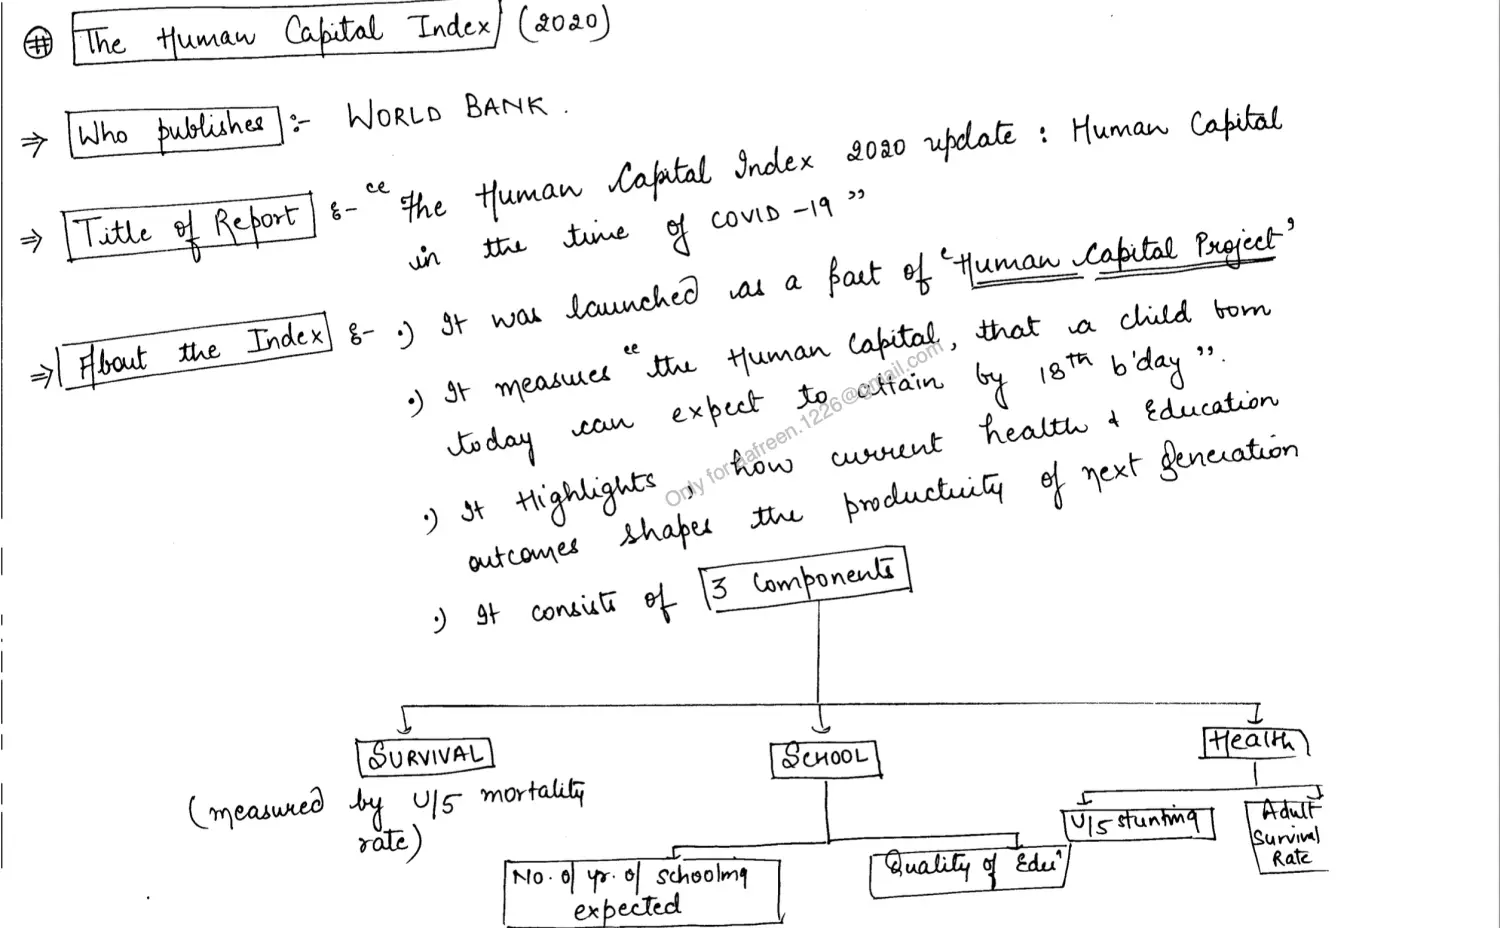 # The Human Capital Index (2020)
⇒ Who publishes :- WORLD BANK.
⇒ Title of Report :- "The Human Capital Index 2020 update : Human Capital
in the time of COVID-19"
⇒ About the Index :- •) It was launched as a part of 'Human Capital Project'
•) It measures "the Human Capital, that a child born
today can expect to attain by 18th b'day".
•) It Highlights, how current health & Education
outcomes shapes the productivity of next generation
•) It consists of 3 Components
SURVIVAL
SCHOOL
Health
(measured by U/5 mortality
rate)
U/5 stunting
Adult
Survival
Rate
No. of yr. of schooling
expected
Quality of Edun
Only for afreen.1226@gmail.com